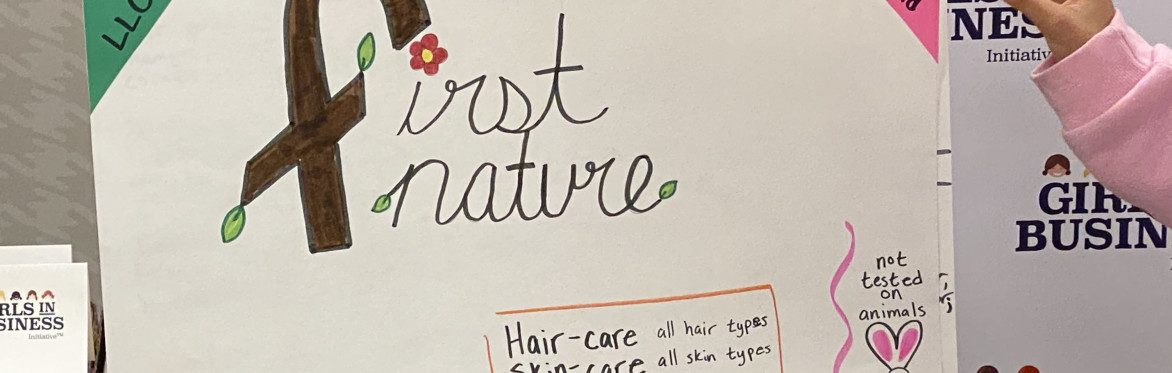 LLC
First
nature
Hair-care all hair types
skin-care all skin types
not
tested
on
animals
NES
Initiativ
GIR
BUSIN
RLS IN
SINESS
Initiative™